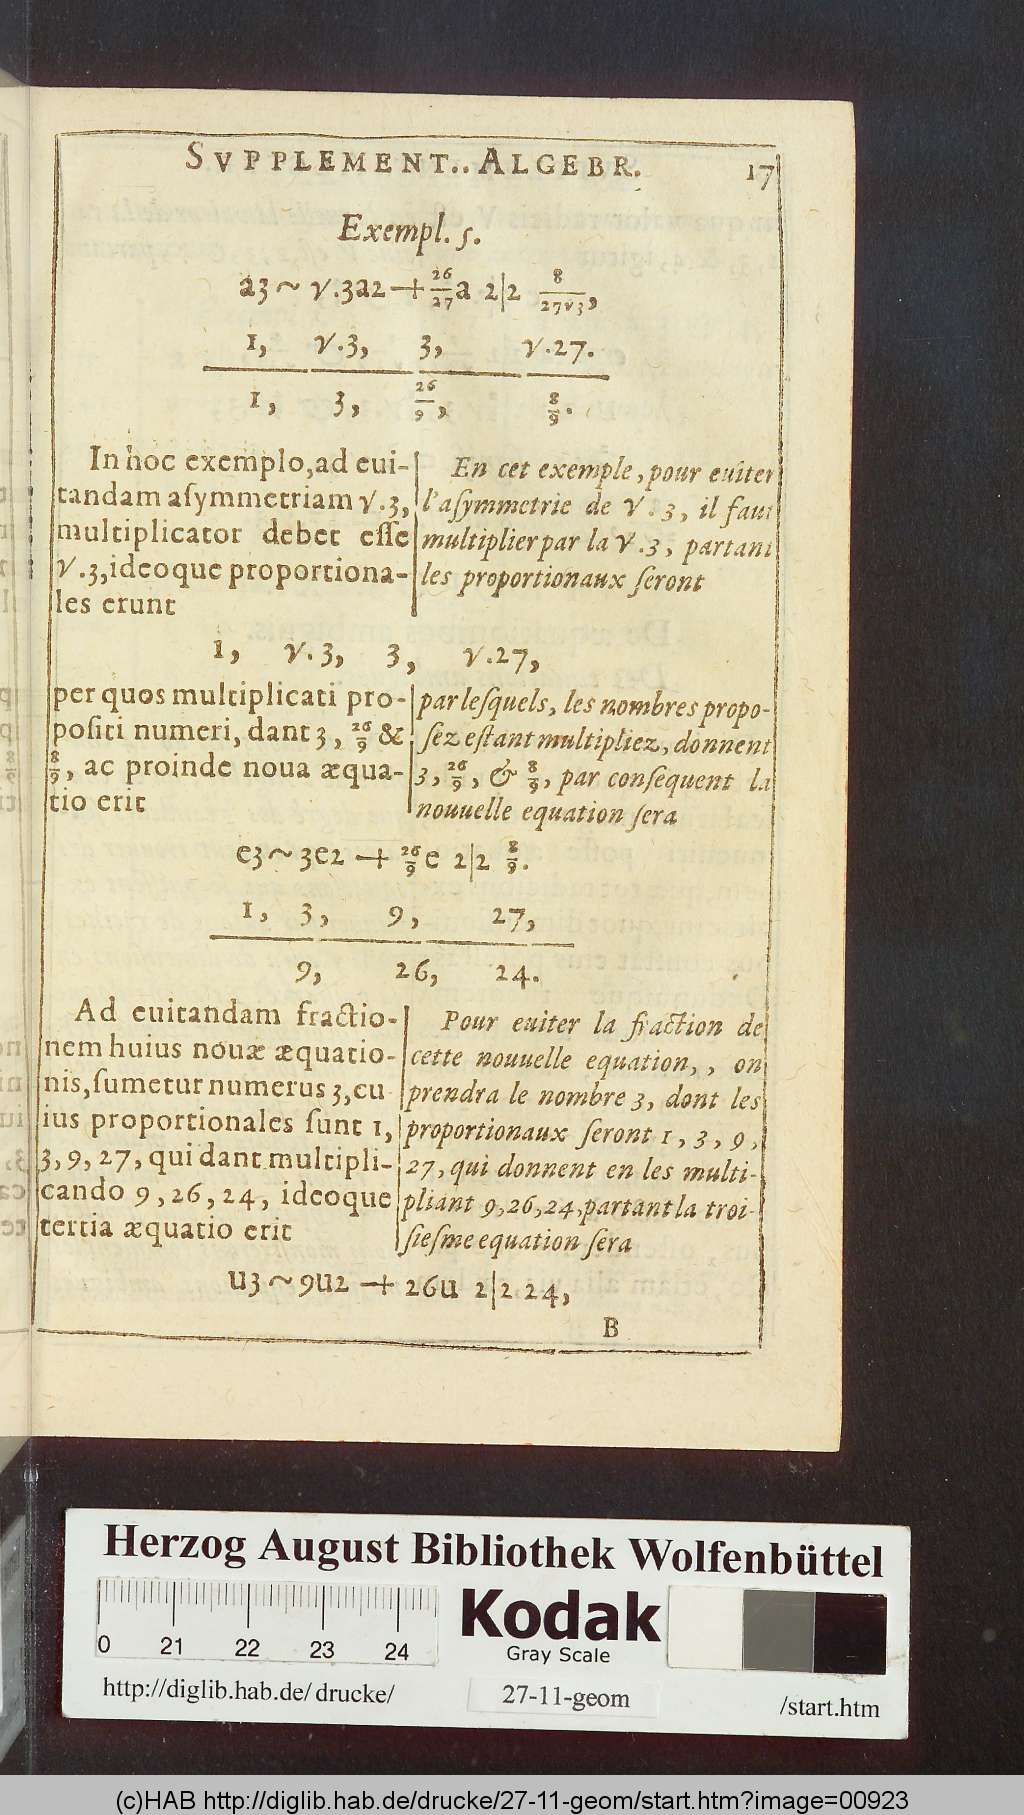 SVPPLEMENT.. ALGEBR. 17
Exempl. 5.
a3 ~ √.3a2 + 26/27 a 2|2 8/27√3,
1, √.3, 3, √.27.
1, 3, 26/9, 8/9.
In hoc exemplo, ad eui-
tandam aſymmetriam √.3,
multiplicator debet eſſe
√.3, ideoque proportiona-
les erunt
En cet exemple, pour euiter
l'aſymmetrie de √.3, il faut
multiplier par la √.3, partant
les proportionaux ſeront
1, √.3, 3, √.27,
per quos multiplicati pro-
poſiti numeri, dant 3, 26/9 &
8/9, ac proinde noua æqua-
tio erit
par leſquels, les nombres propo-
ſez eſtant multipliez, donnent
3, 26/9, & 8/9, par conſequent la
nouuelle equation ſera
e3 ~ 3e2 + 26/9 e 2|2 8/9.
1, 3, 9, 27,
9, 26, 24.
Ad euitandam fractio-
nem huius nouæ æquatio-
nis, ſumetur numerus 3, cu
ius proportionales ſunt 1,
3, 9, 27, qui dant multipli-
cando 9, 26, 24, ideoque
tertia æquatio erit
Pour euiter la fraction de
cette nouuelle equation,, on
prendra le nombre 3, dont les
proportionaux ſeront 1, 3, 9,
27, qui donnent en les multi-
pliant 9, 26, 24, partant la troi-
ſieſme equation ſera
u3 ~ 9u2 + 26u 2|2 24,
B
Herzog August Bibliothek Wolfenbüttel
0 21 22 23 24
Kodak
Gray Scale
http://diglib.hab.de/drucke/ 27-11-geom /start.htm
(c)HAB http://diglib.hab.de/drucke/27-11-geom/start.htm?image=00923